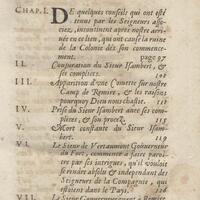 CHAP. I. DE quelques conseils qui ont esté
tenus par les Seigneurs associez,
incontinent apres nostre arrivée
en ce lieu, qui ont causé la ruine
de la Colonie dés son commencement.
page 97
II. Conspiration du Sieur Isambert, &
ses complices. 102
III. Apparition d'une Comette sur nostre
Camp de Remire, & les raisons
pourquoy Dieu nous chastie. 112
IV. Prise du Sieur Isambert avec ses complices,
& son procez. 115
V. Mort constante du Sieur Isambert.
119
VI. Le Sieur de Vertaumont Gouverneur
du Fort, commence à faire paroistre
par ses intrigues, qu'il vouloit
se rendre absolu & independant des
Seigneurs de la Compagnie, qui
estoient dans le Pays. 124
VII.